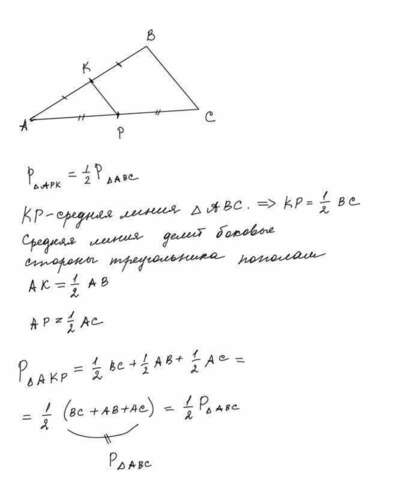 B
K
A
P
C
P△APK = 1/2 P△ABC
KP-средняя линия △ ABC. ⇒ KP = 1/2 BC
Средняя линия делит боковые
стороны треугольника пополам
AK = 1/2 AB
AP = 1/2 AC
P△AKP = 1/2 BC + 1/2 AB + 1/2 AC =
= 1/2 (BC + AB + AC) = 1/2 P△ABC
P△ABC